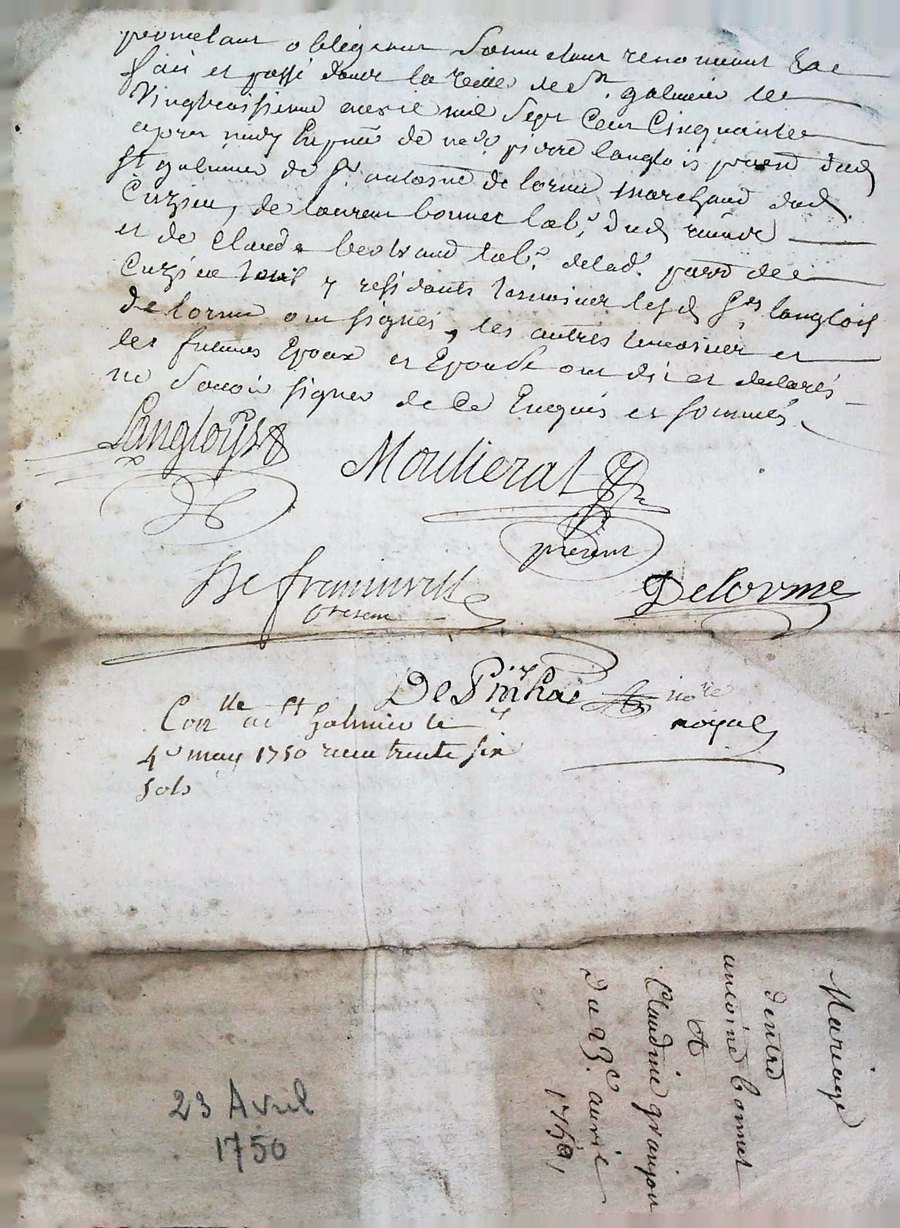 prometant obligeant soumetant renonceant &ac
fait et passé dans la ville de St. galmier le
vingtroisieme avril mil sept cent cinquante
apres midy En pnce de pierre langlois prend dud
St galmier de Sr. antoine delorme marchand dud.
Cuzieu, de laurent bonnet lab.r dud
et de Claude bertrand lab.r delad. parr de
Cuzieu tous y residants temoins lesd. Srs langlois
delorme ont signés, les autres temoins et
les futurs Epoux et Epouse ont dit et declarés
ne savoir signer de ce Enquis et sommés.
Langloys
Moulierat
present
De framinville
present
Delorme
De Pinhac no.re
royal
Con.lle a St Galmier le
4e may 1750 recu trente six
sols
Mariage
dentre
antoine bonnet
et
Claudine granjon
du 23.e avril
1750,
23 Avril
1750